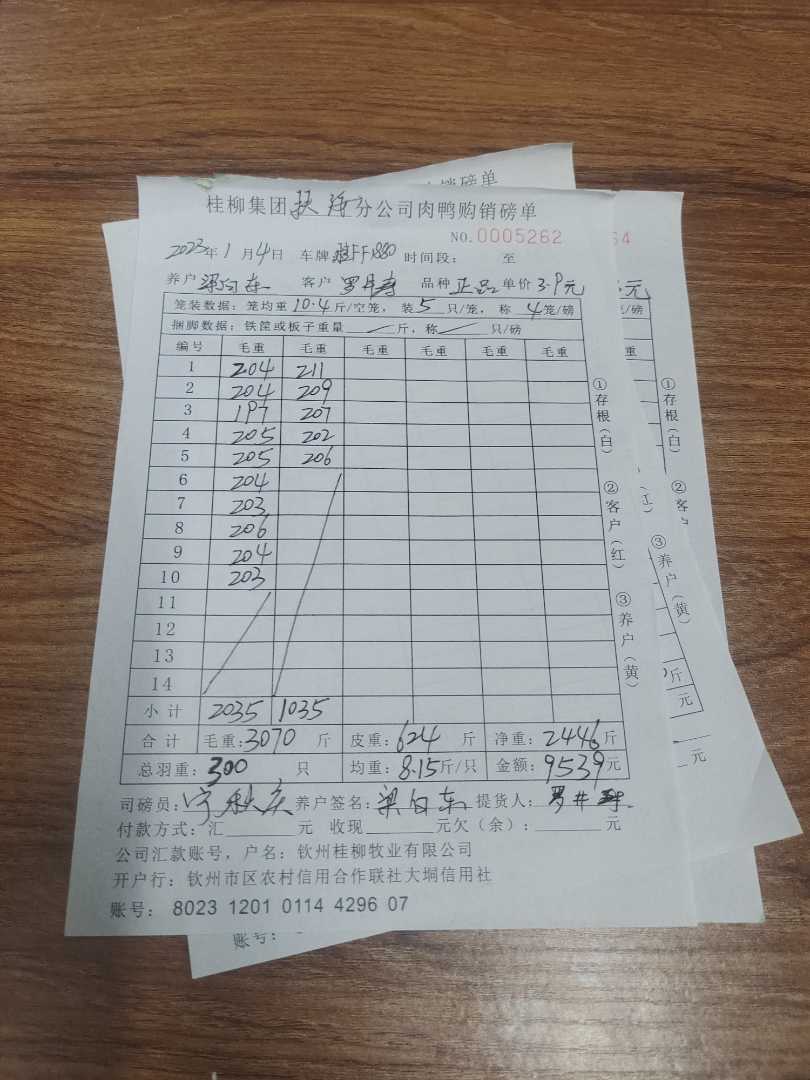 桂柳集团扶绥分公司肉鸭购销磅单
NO.0005262
2023年1月4日 车牌 桂FF1880 时间段: 至
养户 梁白东 客户 罗井 品种 正品 单价 3.9元
笼装数据: 笼均重 10.4 斤/空笼, 装 5 只/笼, 称 4 笼/磅
捆脚数据: 铁筐或板子重量 斤, 称 只/磅
编号 毛重 毛重 毛重 毛重 毛重 毛重
1 204 211
2 204 209
3 197 207
4 205 202
5 205 206
6 204
7 203
8 206
9 204
10 203
11
12
13
14
小计 2035 1035
合计 毛重: 3070 斤 皮重: 624 斤 净重: 2446 斤
总羽重: 300 只 均重: 8.15 斤/只 金额: 9539 元
司磅员: 宁秋庆 养户签名: 梁白东 提货人: 罗井
付款方式: 汇 元 收现 元 欠(余): 元
公司汇款账号, 户名: 钦州桂柳牧业有限公司
开户行: 钦州市区农村信用合作联社大垌信用社
账号: 8023 1201 0114 4296 07
①存根(白)
②客户(红)
③养户(黄)
销磅单
54
元
笼/磅
重
①存根(白)
②客户
③养户(黄)
斤
元
元
账号: